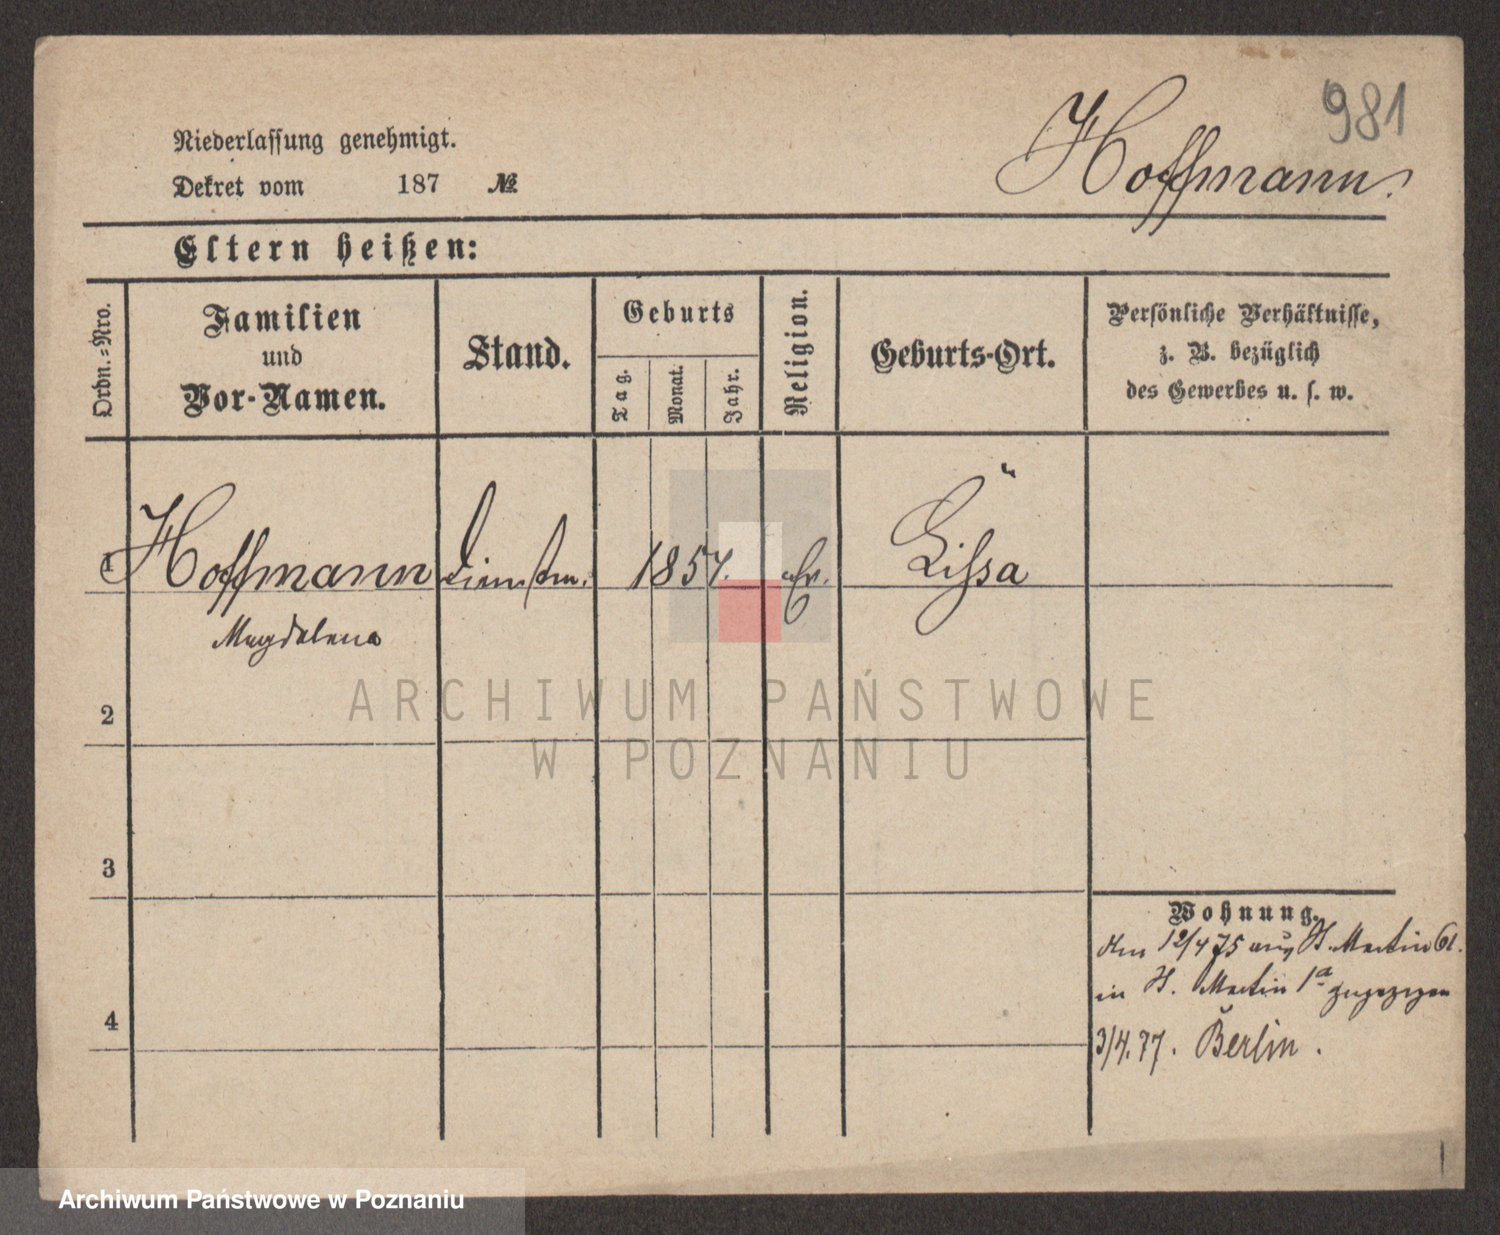 981
Hoffmann.
Niederlassung genehmigt.
Dekret vom 187 №
Eltern heißen:
Ordn.=Nro.
Familien
und
Vor-Namen.
Stand.
Geburts
Tag.
Monat.
Jahr.
Religion.
Geburts-Ort.
Persönliche Verhältnisse,
z. B. bezüglich
des Gewerbes u. s. w.
1 Hoffmann Dienstm. 1857. Ev. Lissa
Magdalena
2
3
4
Wohnung.
Am 12/4 75 aus St. Martin 61.
in St. Martin 1a zugezogen
3/4.77. Berlin.
ARCHIWUM PAŃSTWOWE
W POZNANIU
Archiwum Państwowe w Poznaniu